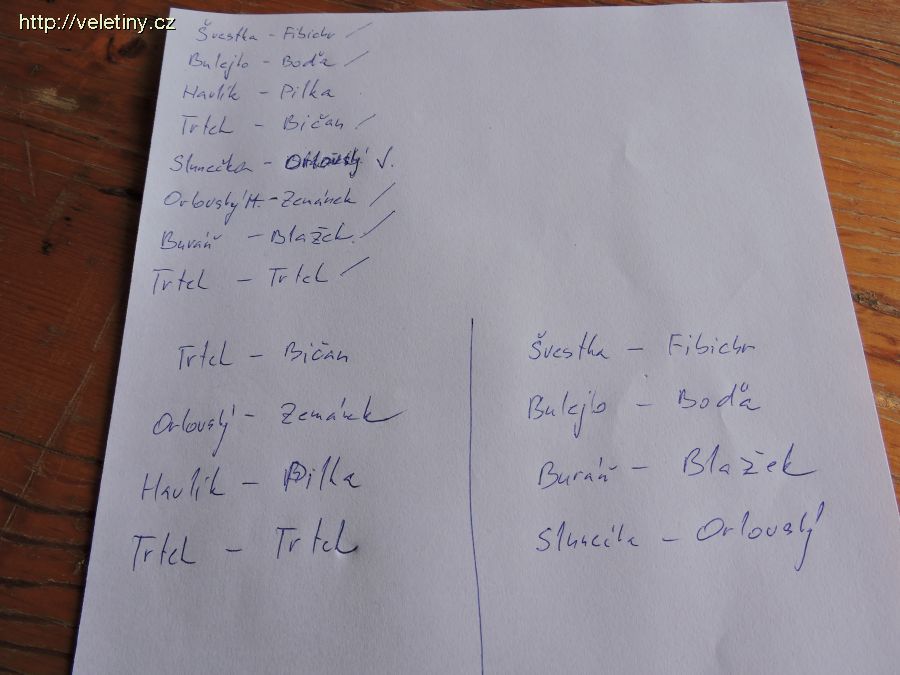 http://veletiny.cz
Švestka - Fibichr /
Bulejko - Boďa /
Havlík - Pilka
Trtch - Bičan /
Slunečka - Orlovský V.
Orlovský H. - Zemánek /
Buráň - Blažek /
Trtch - Trtch /
Trtch - Bičan
Orlovský - Zemánek
Havlík - Pilka
Trtch - Trtch
Švestka - Fibichr
Bulejko - Boďa
Buráň - Blažek
Slunečka - Orlovský